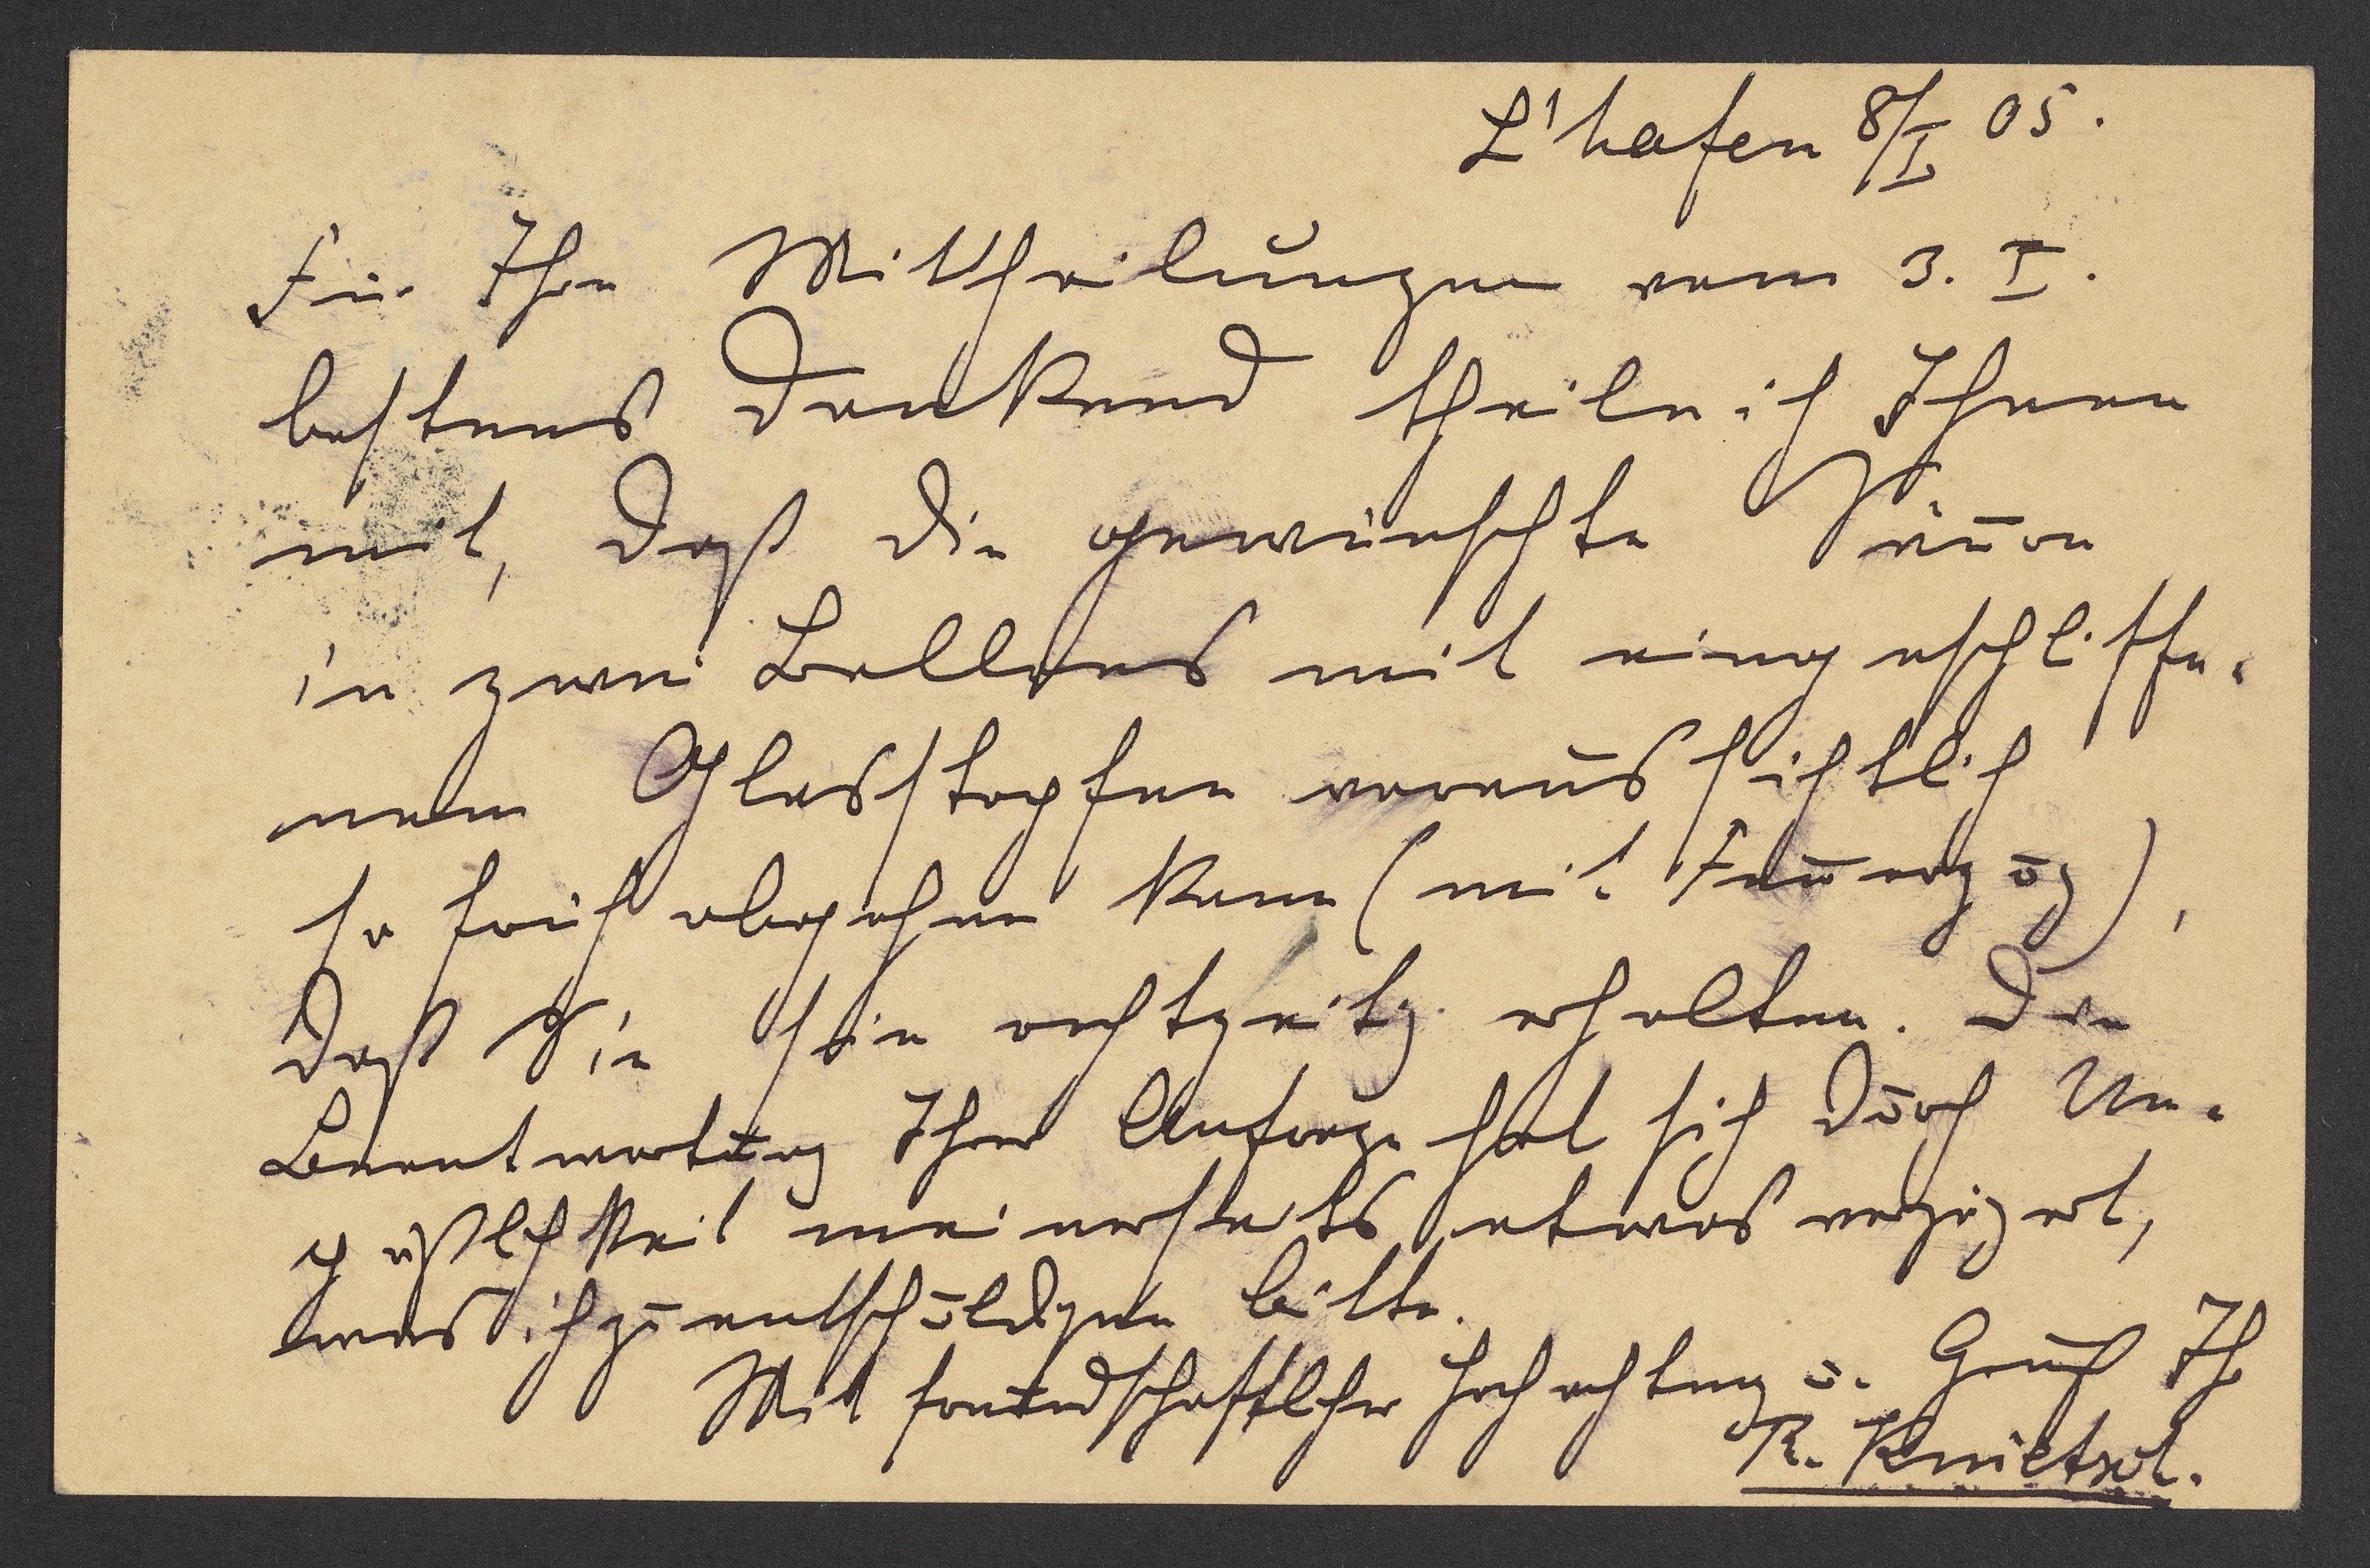 L'hafen 8/I 05.
Für Ihre Mittheilungen vom 3. I.
bestens dankend theile ich Ihnen
mit, daß die gewünschte Säure
in zwei Ballons mit eingeschliffe-
nem Glasstopfen voraussichtlich
so früh abgehen kann (mit Feuerzug),
daß Sie sie rechtzeitig erhalten. Die
Beantwortung Ihrer Anfrage hat sich durch Un-
päßlichkeit meinerseits etwas verzögert,
was ich zu entschuldigen bitte.
Mit freundschaftlicher Hochachtung u. Gruß Ihr
R. Knietsch.